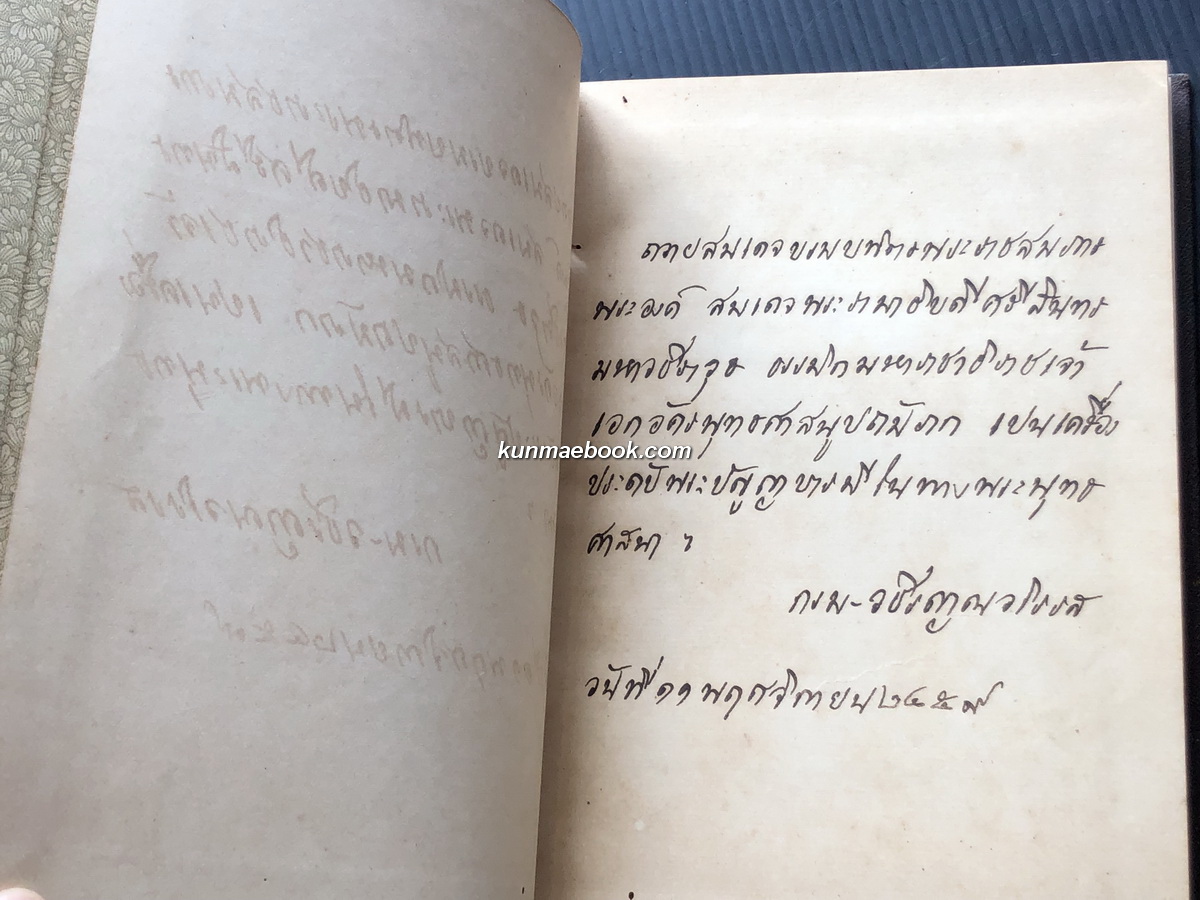 ถวายสมเดจบรมบพิตรพระราชสมภาร
พระองค์ สมเดจพระรามาธิบดีศรีสินทร
มหาวชิราวุธ พระมงกุฎเกล้าเจ้า
เอกอัครพุทธศาสนูปถัมภก เปนเครื่อง
ประดับพระปัญญาบารมีในทางพระพุทธ
ศาสนา ๚
กรม-วชิรญาณวโรรส
วันที่ ๑๑ พฤศจิกายน ๒๔๕๙
kunmaebook.com